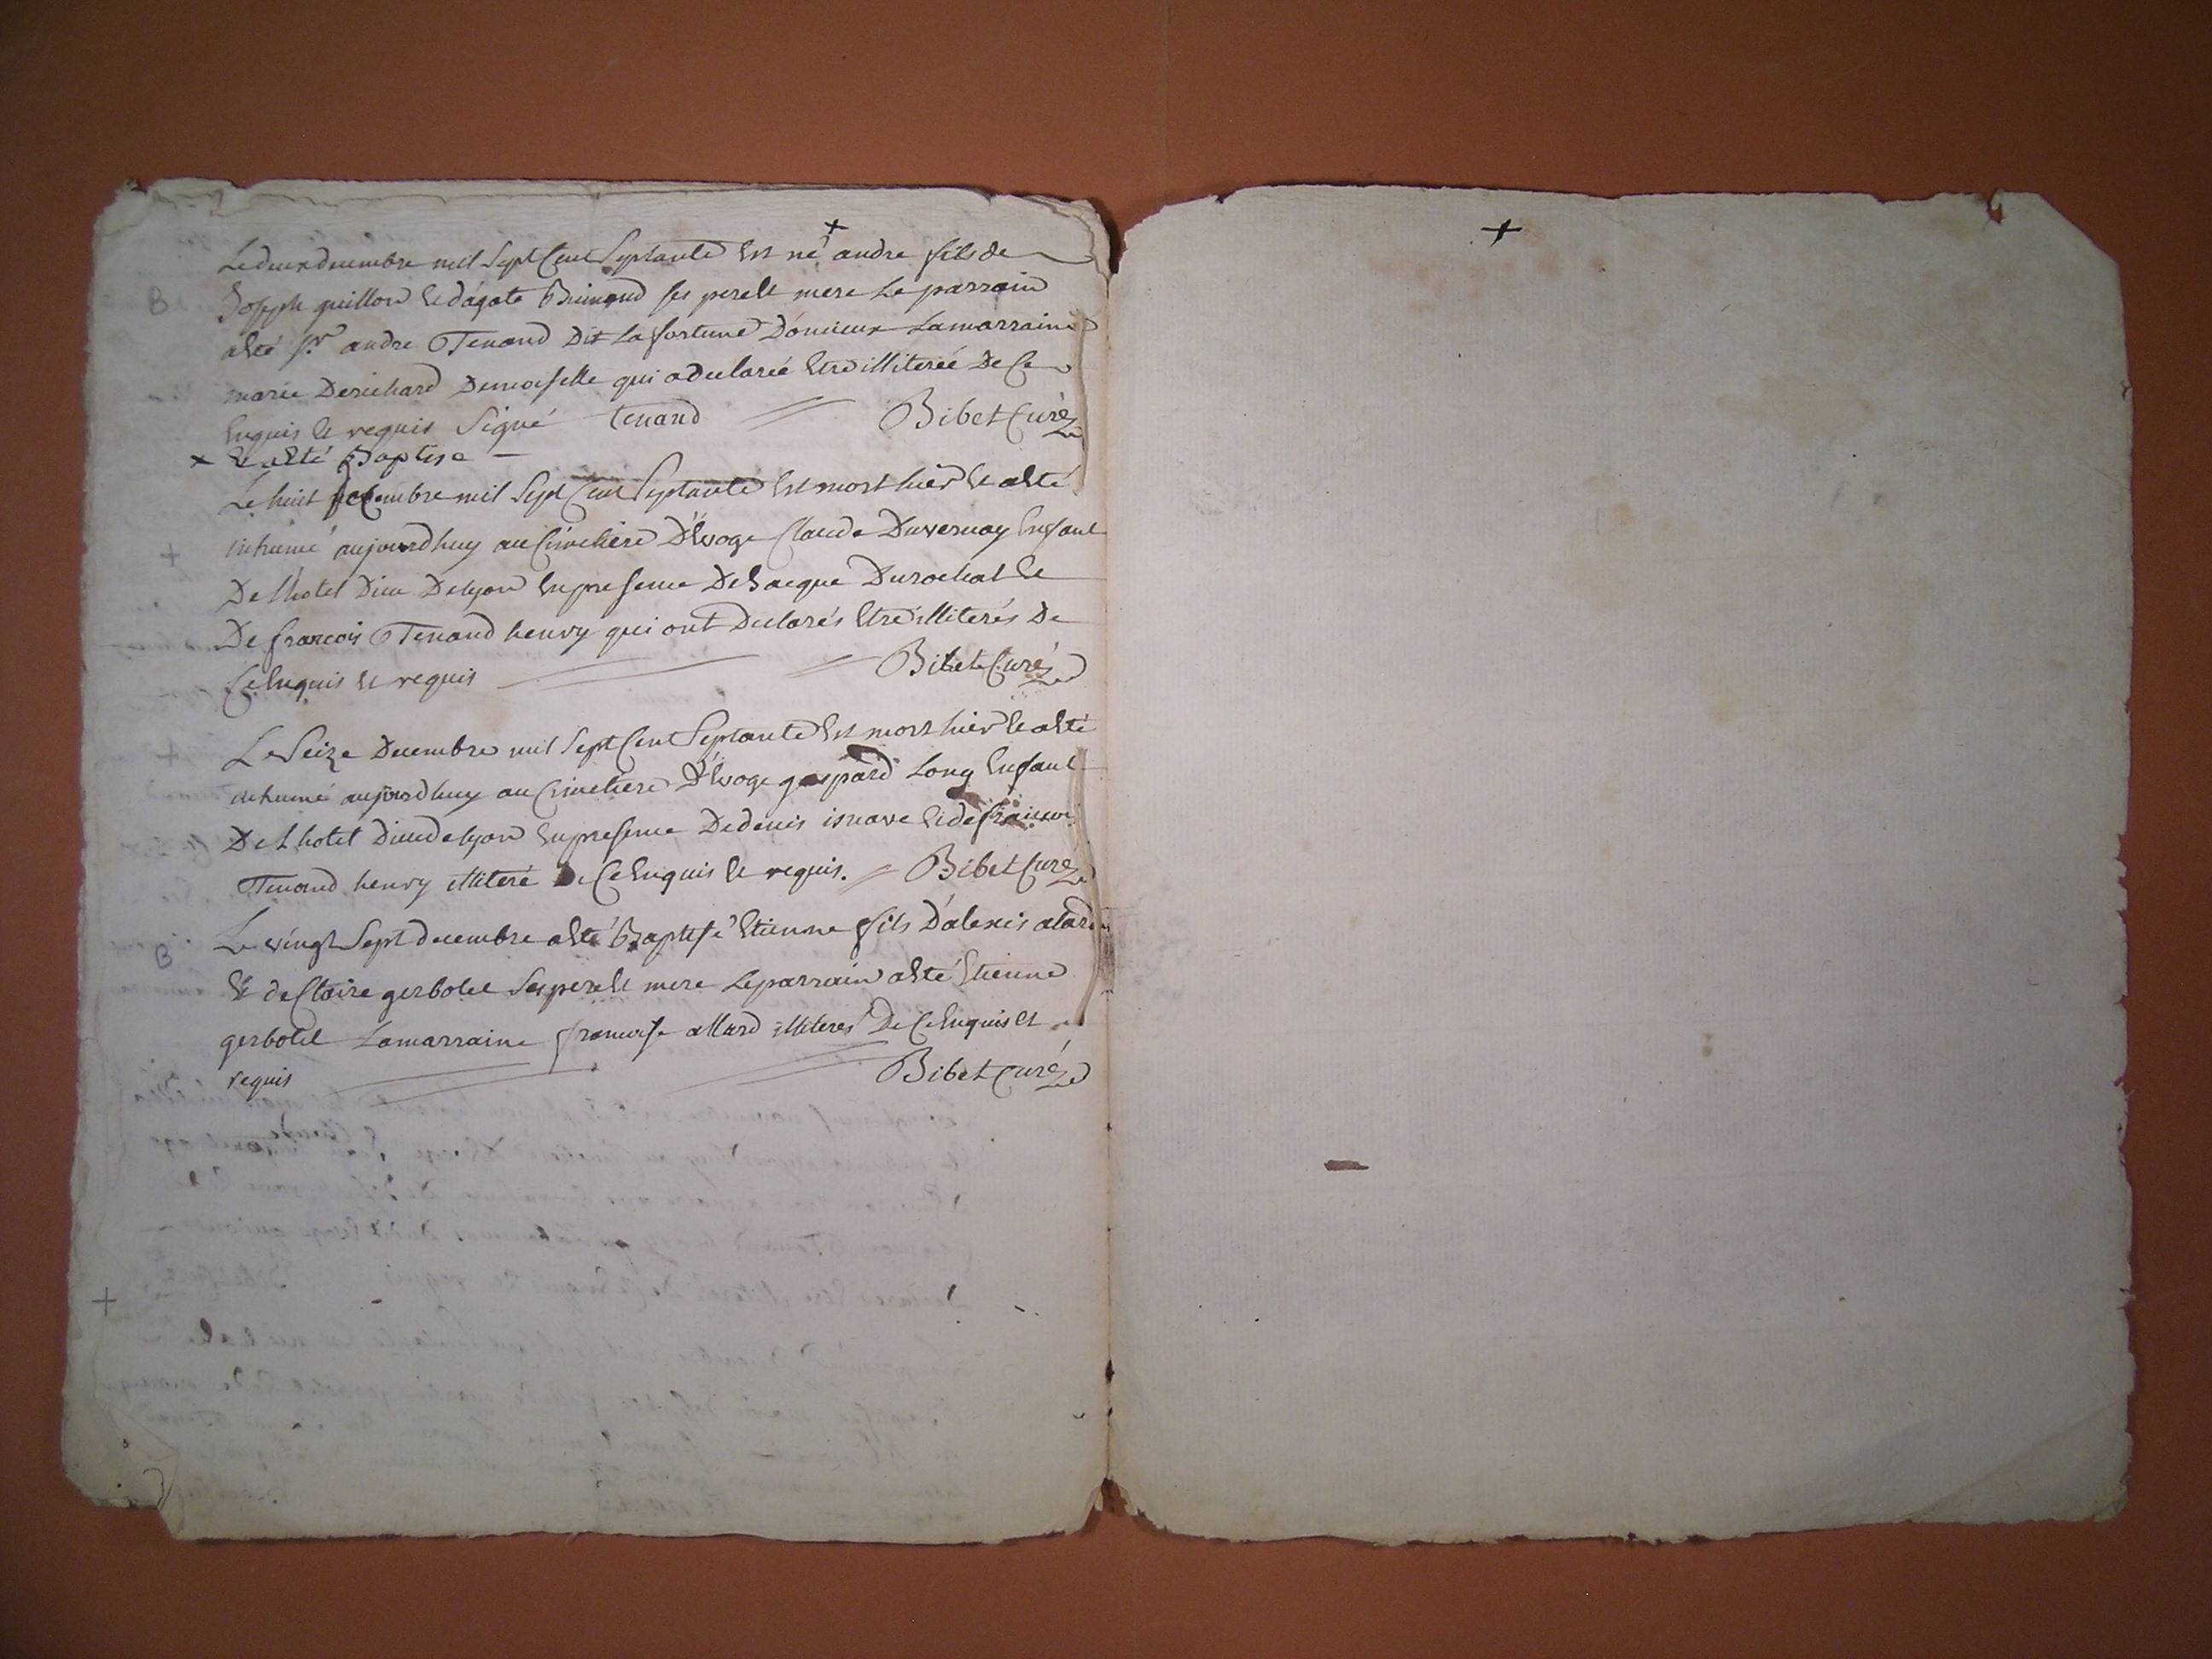 Le deux decembre mil Sept Cent Septante Est né + andre fils de
B
Joseph guillon Et d'agate Brimond ses pere Et mere Le parrain
aEté Sr andre Tenand Dit La fortune D'omieux La marraine
marie Derichard Demoiselle qui a declarée Etre illiterée De Ce
Enquis Et requis Signé Tenand Bibet Curé
+ Et aEté Baptise
Le huit decembre mil Sept Cent Septante Est mort hier Et aEté
+
inhumé aujourdhuy au Cimetiere D'Evoge Claude Duvernay Enfant
De l'hotel Dieu De lyon En presence De Jacque Durochat Et
De francois Tenand henry qui ont Declarés Etre illiterés De
Ce Enquis Et requis Bibet Curé
Le Seize Decembre mil Sept Cent Septante Est mort hier Et aEté
+
inhumé aujourdhuy au Cimetiere D'Evoge gaspard Long Enfant
De L hotel Dieu de lyon En presence De denis isnave Et de
Tenand henry illiteré De Ce Enquis Et requis. Bibet Curé
Le vingt Sept decembre aEté Baptisé Etienne fils D'alexis alard
B
Et de Claire gerbolet Ses pere Et mere Le parrain aEté Etienne
gerbolet La marraine francoise allard illiteres De Ce Enquis Et
requis Bibet Curé
+
+